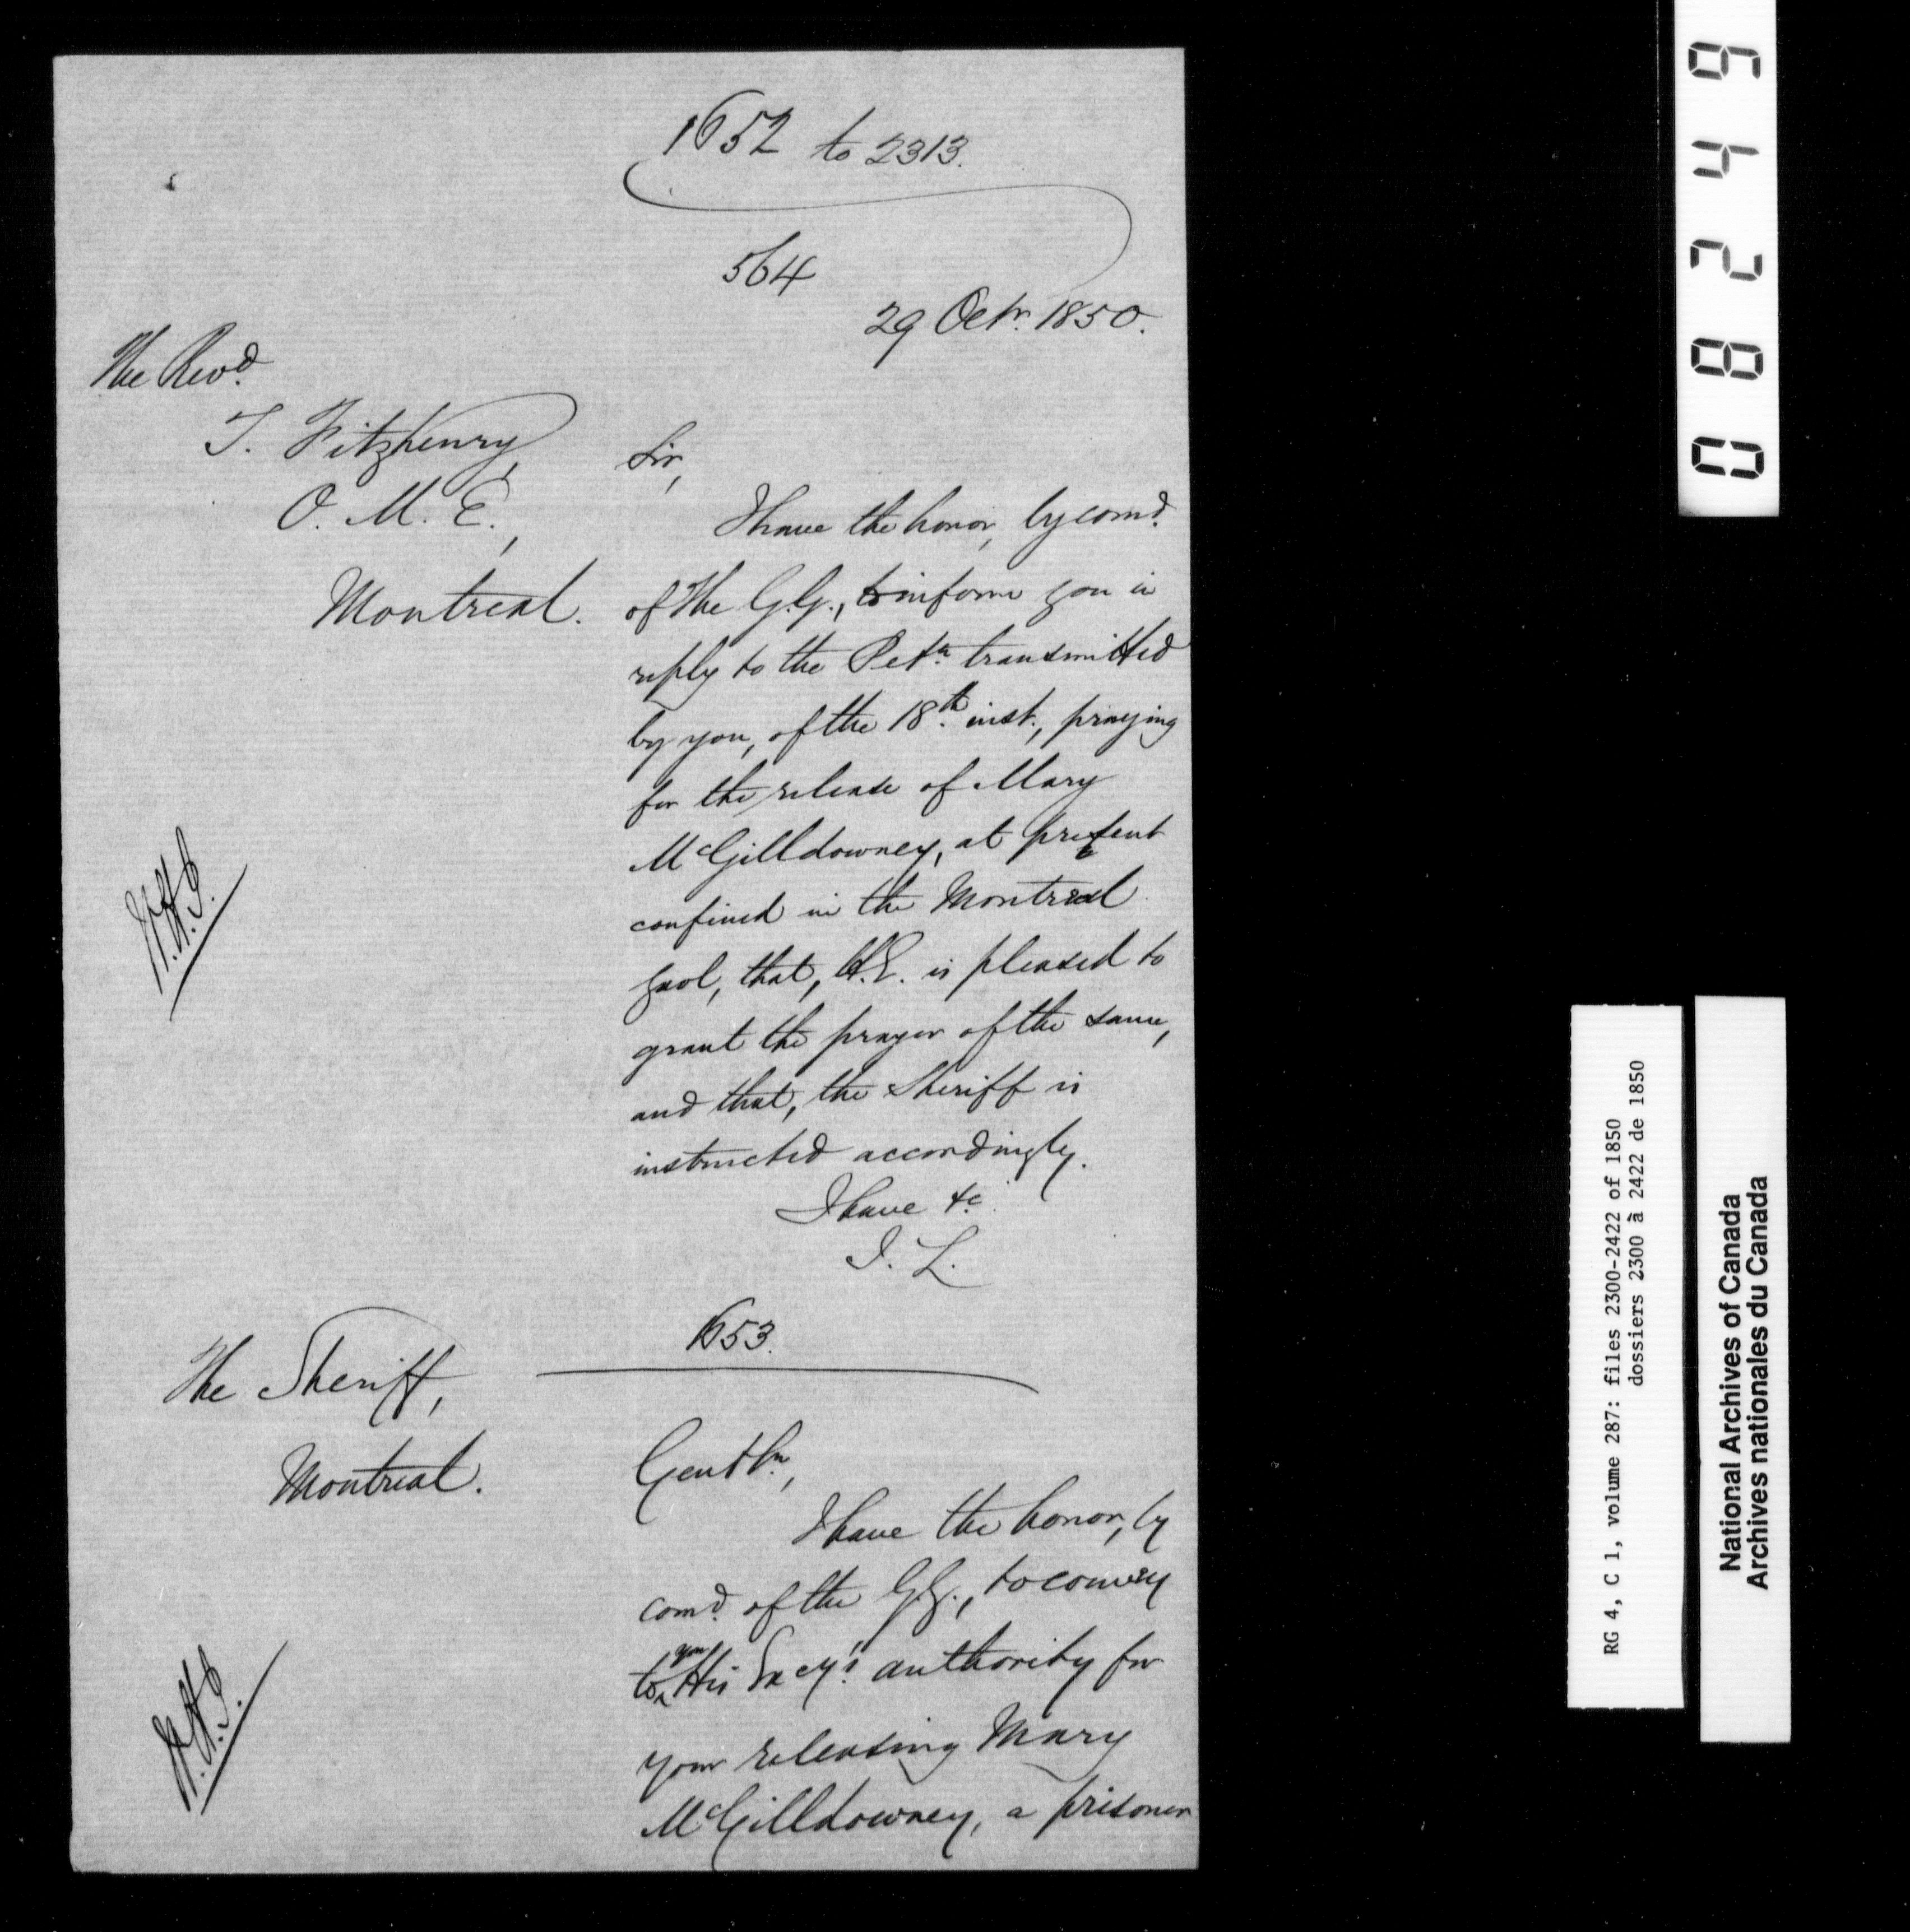 1652 to 2313.
564
29 Octr. 1850.
The Revd.
T. Fitzhenry,
O. M. E.,
Montreal.
Sir,
I have the honor, by comd.
of the G.G., to inform you in
reply to the Petn. transmitted
by you, of the 18th. inst., praying
for the release of Mary
McGilldowney, at present
confined in the Montreal
gaol, that, H.E. is pleased to
grant the prayer of the same,
and that, the Sheriff is
instructed accordingly.
I have &c
J. L.
W.H.J.
1653.
The Sheriff,
Montreal.
Gentln.,
I have the honor, by
comd. of the G.G., to convey
to you His Excy's. authority for
your releasing Mary
McGilldowney, a prisoner
W.H.J.
08249
RG 4, C 1, volume 287: files 2300-2422 of 1850
dossiers 2300 à 2422 de 1850
National Archives of Canada
Archives nationales du Canada